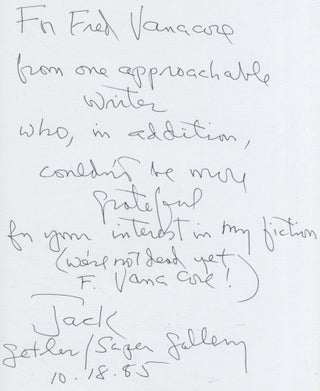 For Fred Vanacore
from one approachable
writer
who, in addition,
couldn't be more
grateful
for your interest in my fiction
(we're not dead yet
F. Vanacore!)
Jack
Getler/Saper Gallery
10.18.85